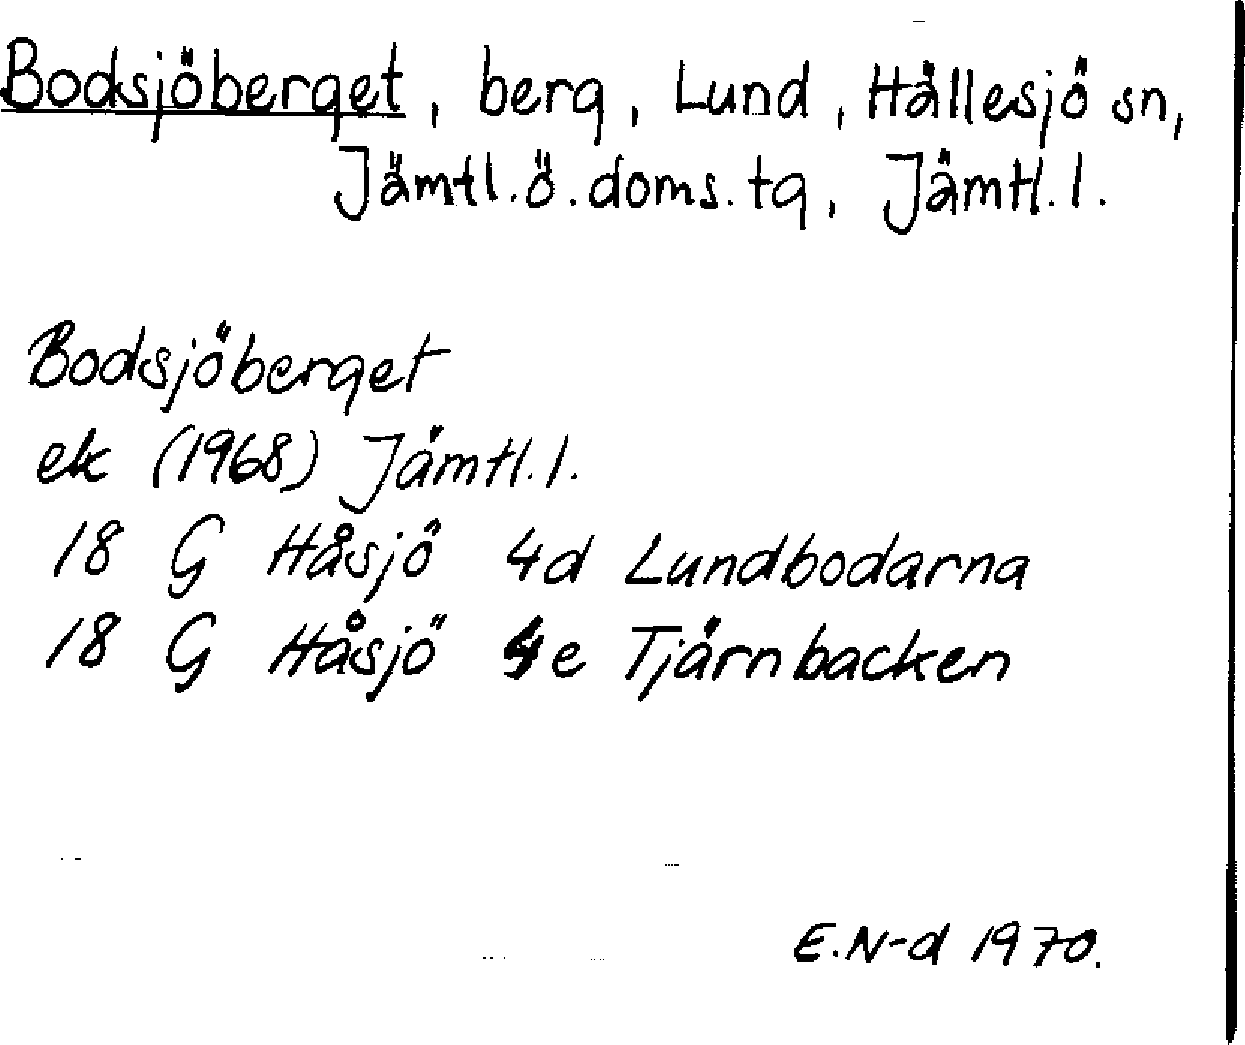 Bodsjöberget, berg, Lund, Hällesjö sn,
Jämtl.ö.doms.tg, Jämtl.l.
Bodsjöberget
ek (1968) Jämtl.l.
18 G Håsjö 4d Lundbodarna
18 G Håsjö 4e Tjärnbacken
E.N-d 1970.